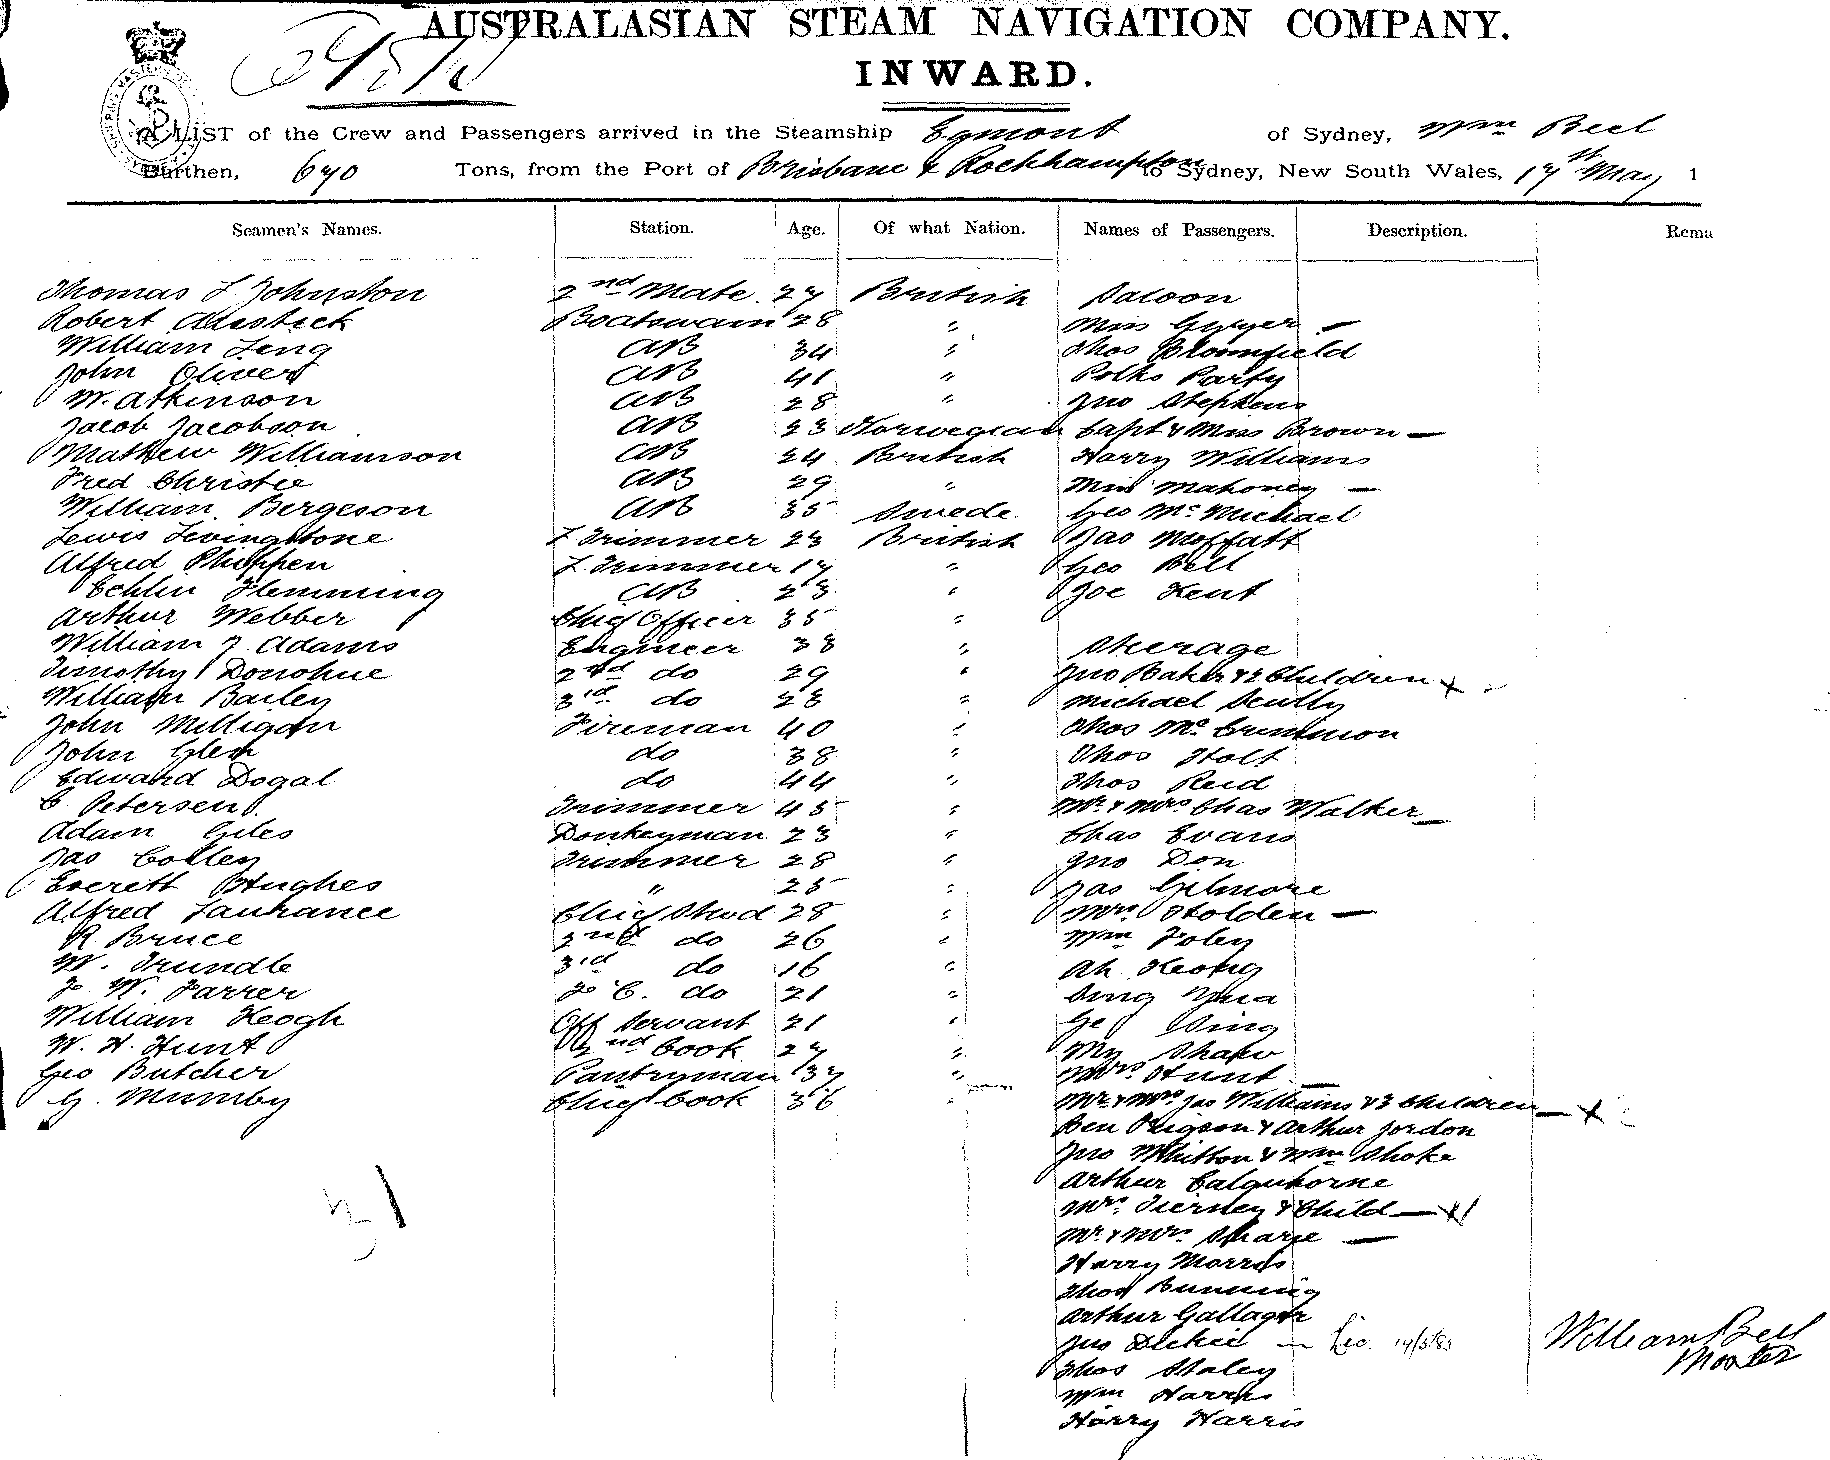 AUSTRALASIAN STEAM NAVIGATION COMPANY.
INWARD.
A LIST of the Crew and Passengers arrived in the Steamship Egmont of Sydney, Wm Bell
Burthen, 670 Tons, from the Port of Brisbane & Rockhampton to Sydney, New South Wales, 17th May 1
Seamen's Names. Station. Age. Of what Nation. Names of Passengers. Description. Rema
Thomas L Johnston 2nd Mate 27 British Saloon
Robert Boatswain 28 " Miss
William Leng AB 34 " Thos Bloomfield
John Oliver AB 41 " Polks Party
W. Atkinson AB 28 " Jno Stephens
Jacob Jacobson AB 23 Norwegian Capt & Miss Brown —
Mathew Williamson AB 24 British Harry Williams
Fred Christie AB 29 " Miss Mahoney —
William Bergeson AB 35 Swede Geo McMichael
Lewis Livingstone L Trimmer 23 British Jas Moffatt
Alfred Phippen L Trimmer 17 " Geo Bell
Echlin Flemming AB 23 " Joe Kent
Arthur Webber Chief Officer 35 "
William J Adams Engineer 38 " Steerage
Timothy Donohue 2nd do 29 " Jno Baker & 2 Children
William Bailey 3rd do 28 " Michael Scully
John Milligan Fireman 40 " Thos McCrummon
John Glen do 38 " Thos Holt
Edward Dogal do 44 " Thos Reid
C Petersen Trimmer 45 " Mr & Mrs Chas Walker —
Adam Giles Donkeyman 23 " Chas Evans
Jas Colley Trimmer 28 " Jno Don
Everett Hughes " 25 " Jas Gilmore
Alfred Laurance Chief Stwd 28 " Mrs Holden —
R Bruce 2nd do 26 " Wm Foley
W. Trundle 3rd do 16 " Ah Keong
F. W. Farrer F C. do 21 " Sing
William Keogh Off Servant 21 " Ge Sing
W. H. Hunt 2nd Cook 27 " My Shaw
Geo Butcher Pantryman 37 " Mrs Hunt —
G. Mumby Chief Cook 36 " Mr & Mrs Jas Williams & 3 Children —
Ben & Arthur Jordon
Jno Whitton & Wm Shoke
Arthur Calquhorne
Mrs. Tierney & Child —
Mr & Mrs Sharpe —
Harry Morris
Thos Bunning
Arthur Gallager
Jno Dickie —
Thos Staley
Wm Harris
Harry Harris
31
William Bell
Master